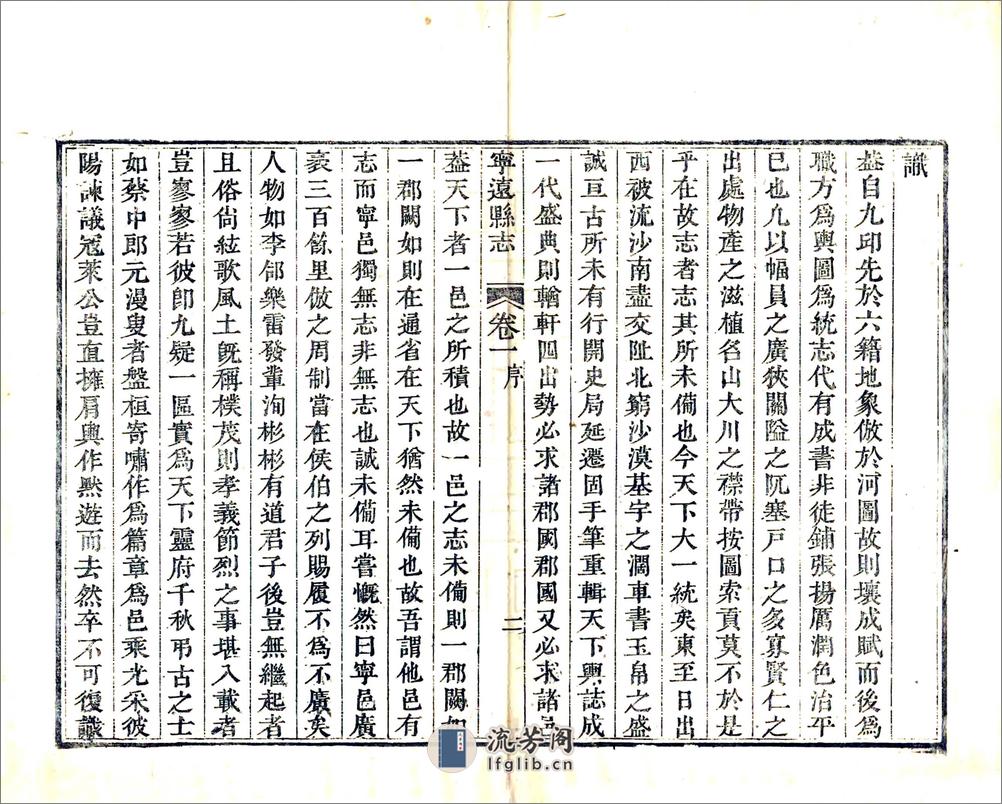 識
葢自九邱先於六籍地象倣於河圖故則壤成賦而後爲
職方爲輿圖爲統志代有成書非徒鋪張揚厲潤色治平
已也凢以幅員之廣狹關隘之阨塞戸口之多寡賢仁之
出處物產之滋植名山大川之襟帶按圖索貢莫不於是
乎在故志者志其所未備也今天下大一統矣東至日出
西被流沙南盡交阯北窮沙漠基宇之濶車書玉帛之盛
誠亘古所未有行開史局延遷固手筆重輯天下輿誌成
一代盛典則輶軒四出勢必求諸郡國郡國又必求諸邑
寧遠縣志 卷一 序 二
葢天下者一邑之所積也故一邑之志未備則一郡闕如
一郡闕如則在通省在天下猶然未備也故吾謂他邑有
志而寧邑獨無志非無志也誠未備耳嘗慨然曰寧邑廣
袤三百餘里倣之周制當在侯伯之列賜履不爲不廣矣
人物如李郃樂雷發輩洵彬彬有道君子後豈無繼起者
且俗尙絃歌風土旣稱樸茂則孝義節烈之事堪入載者
豈寥寥若彼卽九疑一區實爲天下靈府千秋弔古之士
如蔡中郎元漫叟者盤桓寄嘯作爲篇章爲邑乘光采彼
陽諫議寇萊公豈直擁肩輿作㸃遊而去然卒不可復識
流芳阁
lfglib.cn